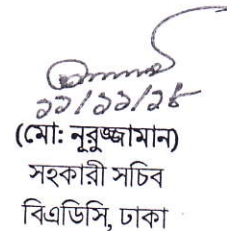 ১১/১১/২৪
(মো: নূরুজ্জামান)
সহকারী সচিব
বিএডিসি, ঢাকা